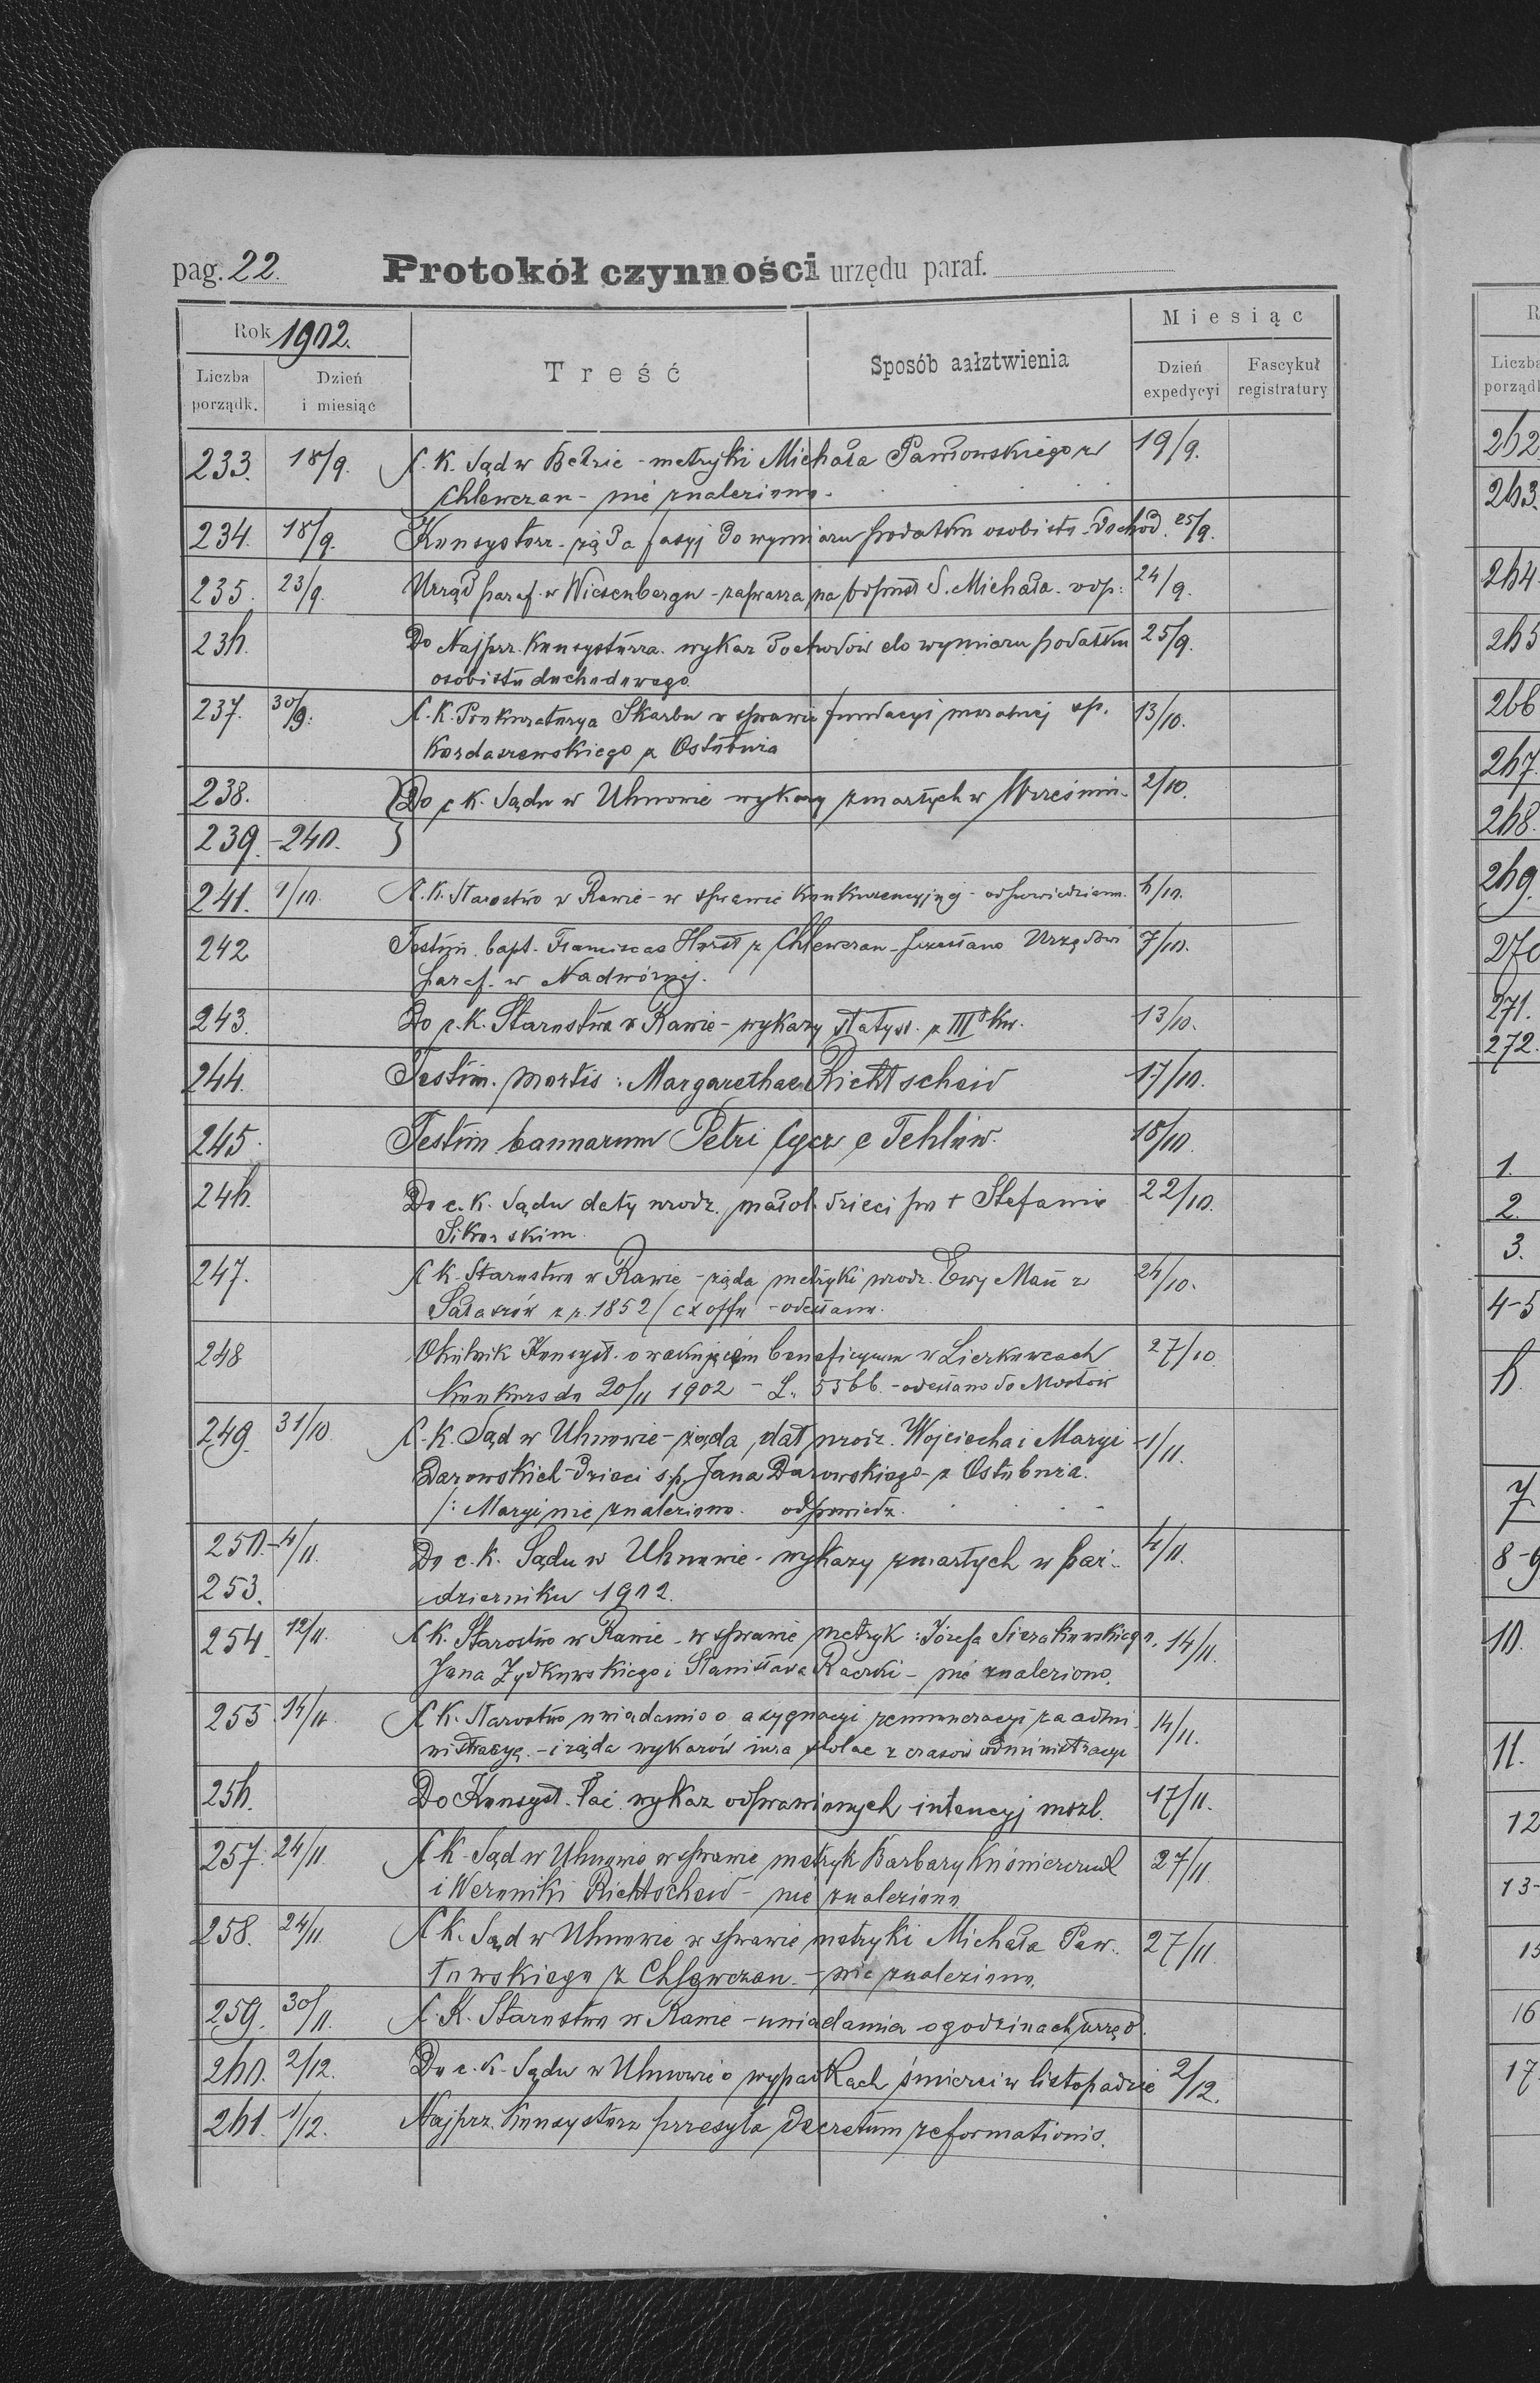 pag. 22. Protokół czynności urzędu paraf.
Rok 1902. Treść Sposób aałztwienia Miesiąc
Liczba porządk. Dzień i miesiąc Dzień expedycyi Fascykuł registratury
233. 18/9. C. K. Sąd w Bełzie - metryki Michała Pawłowskiego z 19/9.
Chlewczan - nie znaleziono.
234. 18/9. Konsystorz - żąda fasyj do wymiaru podatku osobisto-dochod. 25/9.
235. 23/9. Urząd paraf. w Wiesenbergu - zaprasza na odpust S. Michała. odp: 24/9.
236. Do Najprz. Konsystorza. wykaz dochodów do wymiaru podatku 25/9.
osobisto dochodowego.
237. 30/9. C. K. Prokuratorya Skarbu w sprawie fundacyi mszalnej sp. 13/10.
Kordaszewskiego z Ostobuża
238. Do c. K. Sądu w Uhnowie wykazy zmarłych w Wrześniu. 2/10.
239. - 240.
241. 1/10. C. K. Starostwo w Rawie - w sprawie konkurencyjnej - odpowiedziano. 6/10.
242 Testim. bapt. Franciscae Horst z Chlewczan - przesłano Urzędowi 7/10.
paraf. w Nadwórnej.
243. Do c. K. Starostwa w Rawie - wykazy statyst. z III kw. 13/10.
244. Testim. mortis: Margarethae Richtscheid 17/10.
245. Testim bannorum Petri Cycz e Tehlów. 18/10.
246. Do c. K. Sądu daty urodz. małol. dzieci po + Stefanie 22/10.
Sikorskim.
247. C K. Starostwo w Rawie - żąda metryki urodz. Ewy Mań z 26/10.
Sałaszów z r. 1852 / ex offo - odesłano.
248 Okólnik Konsyst. o wakującem beneficyum w Lierkowcach 27/10.
Konkurs do 20/11 1902 - L. 5566. - odesłano do Mostów
249. 31/10 C. K. Sąd w Uhnowie - żąda dat urodz. Wojciecha i Maryi 1/11.
Darowskich - dzieci s.p. Jana Darowskiego - z Ostobuża.
/: Maryi nie znaleziono. odpowiedz.
250. - 4/11. Do c. K. Sądu w Uhnowie - wykazy zmarłych w paź- 4/11.
253. dzierniku 1902.
254. 12/11. C K. Starostwo w Rawie - w sprawie metryk: Józefa Sierakowskiego, 14/11.
Jana Zydkowskiego i Stanisława Raczki - nie znaleziono.
255. 14/11. C K. Starostwo uwiadamia o asygnacyi remuneracyi za admi- 14/11.
nistracyę. - i żąda wykazów iura stolae z czasów administracyi
256. Do Konsyst. łac. wykaz odprawionych intencyj mszl. 17/11.
257. 24/11. C K. Sąd w Uhnowie w sprawie metryk Barbary 27/11.
i Weroniki Richtscheid - nie znaleziono
258. 24/11. C K. Sąd w Uhnowie w sprawie metryki Michała Paw- 27/11.
łowskiego z Chlewczan. - nie znaleziono.
259. 30/11. C. K. Starostwo w Rawie - uwiadamia o godzinach urzęd.
260. 2/12. Do c. K. Sądu w Uhnowie o wypadkach śmierci w listopadzie 2/12.
261. 1/12. Najprz. Konsystorz przesyła decretum reformationis.
R
Liczba
porządk
262
263.
264.
265
266
267.
268.
269.
270
271.
272.
1.
2.
3.
4-5
6.
7
8-9
10.
11.
12
13-
15
16
17